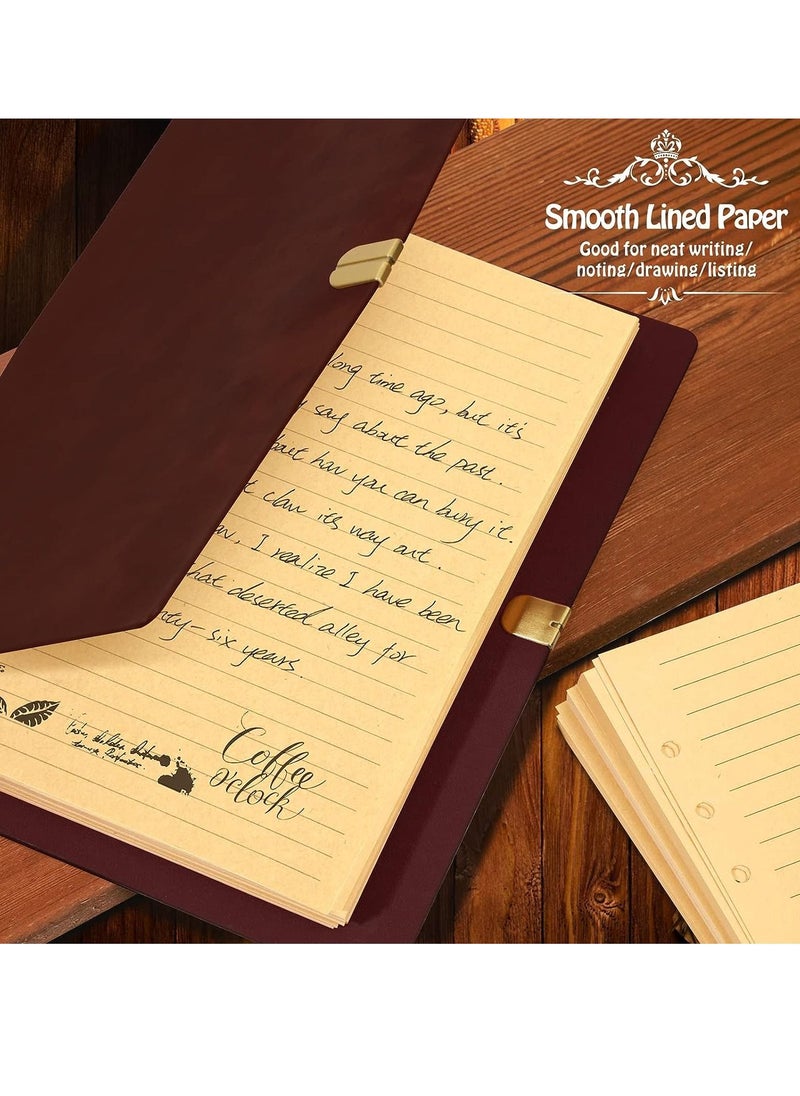 Smooth Lined Paper
Good for neat writing/
noting/drawing/listing
long time ago, but it's
say about the past.
out how you can bury it.
claw its way out.
, I realize I have been
that deserted alley for
nty-six years.
Coffee
o'clock